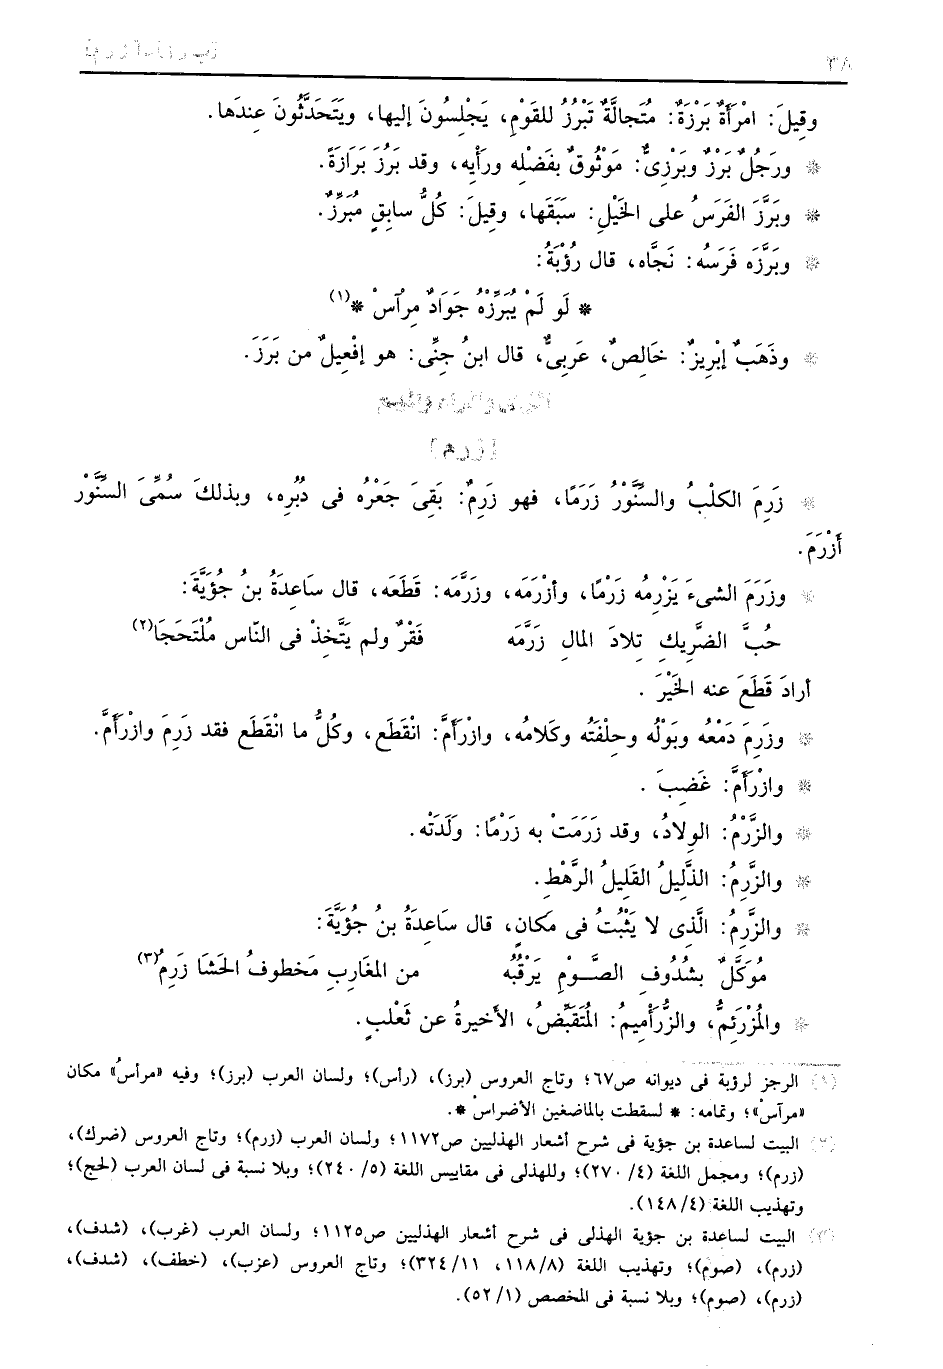 ٣٨
وقِيلَ: امْرَأَةٌ بَرْزَةٌ: مُتَجالَّةٌ تَبْرُزُ للقَوْمِ، يَجْلِسُونَ إليها، ويَتَحَدَّثُونَ عِندَها.
* ورَجُلٌ بَرْزٌ وبَرْزِىٌّ: مَوْثُوقٌ بفَضْلِه ورَأْيِه، وقد بَرُزَ بَرَازَةً.
* وبَرَّزَ الفَرَسُ على الخَيْلِ: سَبَقَها، وقِيلَ: كُلُّ سابِقٍ مُبَرِّزٌ.
* وبَرَّزَه فَرَسُه: نَجَّاه، قال رُؤْبَةُ:
* لَو لَمْ يُبَرِّزْهُ جَوَادٌ مِرْآسْ *(١)
* وذَهَبٌ إبْرِيزٌ: خَالِصٌ، عَرَبىٌّ، قال ابنُ جِنِّى: هو إفْعِيلٌ من بَرَزَ.
* زَرِمَ الكلْبُ والسِّنَّوْرُ زَرَمًا، فهو زَرِمٌ: بَقِىَ جَعْرُه فى دُبُرِه، وبذلكَ سُمِّىَ السِّنَّوْر
أَزْرَمَ.
* وزَرَمَ الشىءَ يَزْرِمُه زَرْمًا، وأزْرَمَه، وزَرَّمَه: قَطَعَه، قال سَاعِدَةُ بنُ جُؤَيَّةَ:
حُبَّ الضَّرِيكِ تِلادَ المالِ زَرَّمَه فَقْرٌ ولم يَتَّخِذْ فى النّاس مُلْتَحَجَا(٢)
أرادَ قَطَعَ عنه الخَيْرَ .
* وزَرِمَ دَمْعُه وبَوْلُه وحِلْفَتُه وكَلامُه، وازْرَأَمَّ: انْقَطَع، وكُلُّ ما انْقَطَع فقد زَرِمَ وازْرَأَمَّ.
* وازْرَأَمَّ: غَضِبَ .
* والزَّرْمُ: الوِلادُ، وقد زَرَمَتْ به زَرْمًا: وَلَدَتْه.
* والزَّرِمُ: الذَّلِيلُ القَلِيلُ الرَّهْطِ.
* والزَّرِمُ: الَّذى لا يَثْبُتُ فى مَكانٍ، قال سَاعِدَةُ بنُ جُؤَيَّةَ:
مُوَكَّلٌ بشُدُوفِ الصَّوْمِ يَرْقُبُه من المغَارِبِ مَخطوفُ الحَشَا زَرِمُ(٣)
* والمُزْرَئِمُّ، والزُّرَأْمِيمُ: المُتَقَبِّضُ، الأَخيرةُ عن ثَعْلبٍ.
(١) الرجز لرؤبة فى ديوانه ص٦٧؛ وتاج العروس (برز)، (رأس)؛ ولسان العرب (برز)؛ وفيه «مرأسُ» مكان
«مرآسْ»؛ وتمامه: * لسقطت بالماضغين الأضراسْ *.
(٢) البيت لساعدة بن جؤية فى شرح أشعار الهذليين ص١١٧٢؛ ولسان العرب (زرم)؛ وتاج العروس (ضرك)،
(زرم)؛ ومجمل اللغة (٤/ ٢٧٠)؛ وللهذلى فى مقاييس اللغة (٥/ ٢٤٠)؛ وبلا نسبة فى لسان العرب (لحج)؛
وتهذيب اللغة (٤/ ١٤٨).
(٣) البيت لساعدة بن جؤية الهذلى فى شرح أشعار الهذليين ص١١٢٥؛ ولسان العرب (غرب)، (شدف)،
(زرم)، (صوم)؛ وتهذيب اللغة (٨/ ١١٨، ١١/ ٣٢٤)؛ وتاج العروس (عزب)، (خطف)، (شدف)،
(زرم)، (صوم)؛ وبلا نسبة فى المخصص (١/ ٥٢).